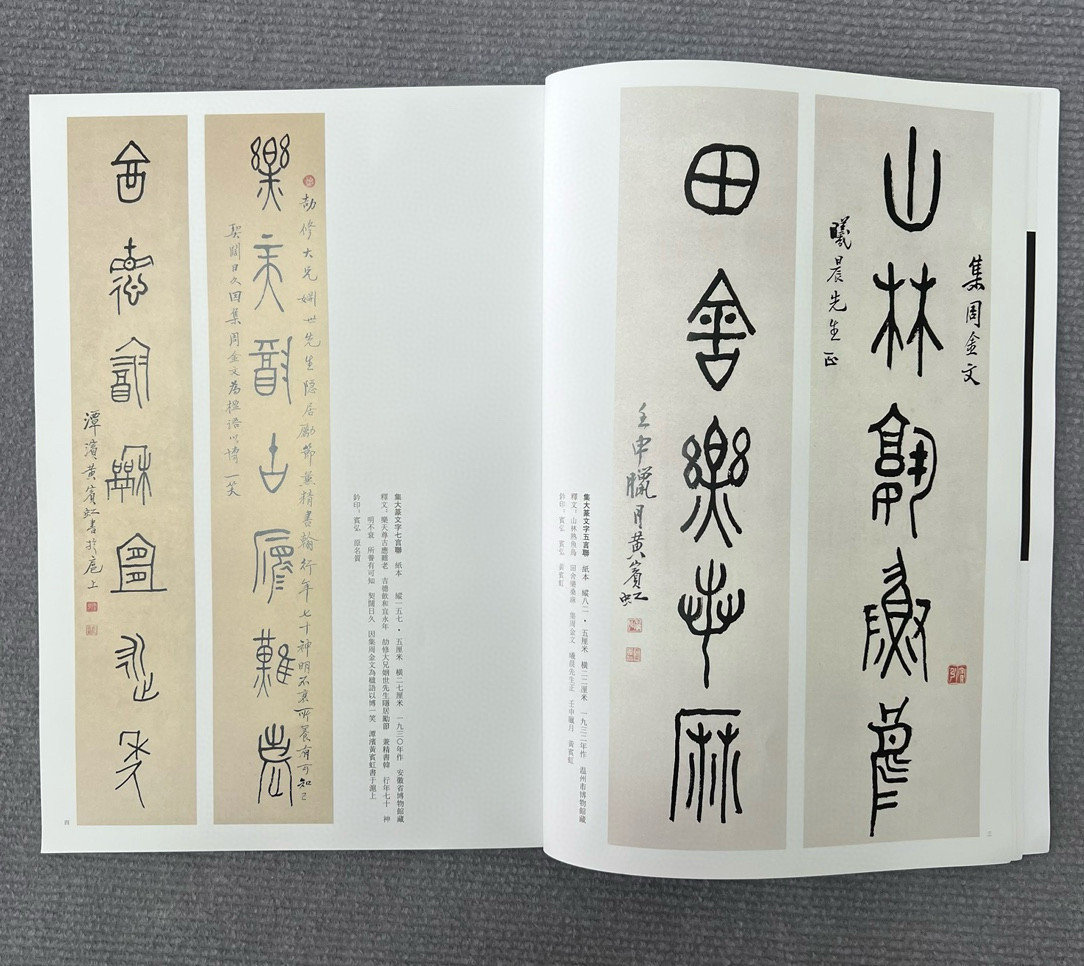 集周金文
山林孰魚鳥
曦晨先生正
田舍樂桑麻
壬申臘月黃賓虹
集大篆文字五言聯 紙本 縱八二·五厘米 橫二二厘米 一九三二年作 溫州市博物館藏
釋文：山林熟魚鳥 田舍樂桑麻 集周金文 曦晨先生正 壬申臘月 黃賓虹
鈐印：賓弘 賓弘 黃賓虹
集大篆文字七言聯 紙本 縱一五七·五厘米 橫二七厘米 一九三〇年作 安徽省博物館藏
釋文：樂天尊古應難老 吉德飲和宜永年 劼修大兄姻世先生隱居勵節 兼精書翰 行年七十 神
明不衰 所養有可知 契闊日久 因集周金文為楹語以博一笑 潭濱黃賓虹書于滬上
鈐印：賓弘 原名質
劼修大兄姻世先生隱居勵節兼精書翰行年七十神明不衰所養有可知已
樂天韻古應難老
契闊日久因集周金文為楹語以博一笑
吉德飲和宜永年
潭濱黃賓虹書於滬上